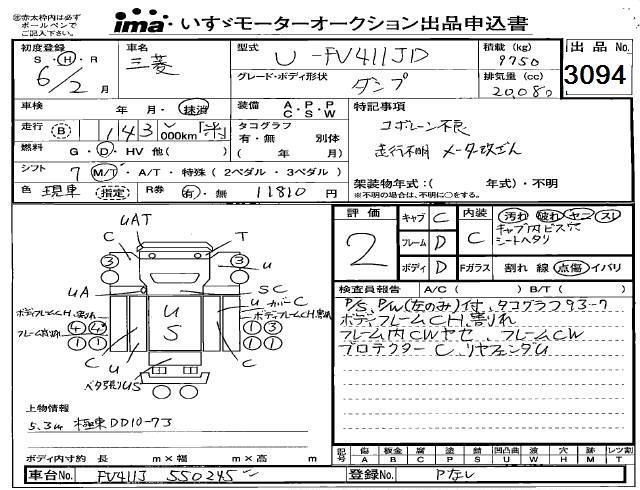 ※赤太枠内は必ず
ボールペンで
ご記入下さい。
ima いすゞモーターオークション出品申込書
初度登録 S・H・R 6/2月
車名 三菱
型式 U-FV411JD
積載(kg) 9750
出品No. 3094
グレード・ボディ形状 ダンプ
排気量(cc) 20,080
車検 年 月・抹消
装備 A・P・P C・S・W
特記事項
コボレーン不良
走行不明 メータ改ざん
走行 B 143,000km
タコグラフ 有・無 別体 (年 月)
燃料 G・D・HV 他( )
シフト 7 M/T・A/T・特殊(2ペダル・3ペダル)
架装物年式:( 年式)・不明
※不明の場合は、不明に○をする。
色 現車 指定 R券 有・無 11810円
評価 2
キャブ C
フレーム D
ボディ D
内装 C
汚れ 破れ ヤニ スレ
キャブ内ビス穴
シートヘタリ
Fガラス 割れ 線 点傷 イバリ
検査員報告 A/C( ) B/T( )
P/S P/W(左のみ)付、タコグラフ93-7
ボディフレームCH、割れ
フレーム内CWヤセ、フレームCW
プロテクターC、リヤフェンダU
UAT
C T
3 3
u
UA SC
u カバーC
ボディフレームCH、割れ
ボディフレームCH、割れ
U S
4 4 1 3
1 1 1 1
C C
U
ベタ張りUS
上物情報
5.3m 極東DD10-73
ボディ内寸約 長 m×幅 m×高 m
記号 傷A 板金B 腐C 塗P 錆S 凹凸曲U 波W 穴H 跡M レンズ割T
車台No. FV411J 550245
登録No. Pなし